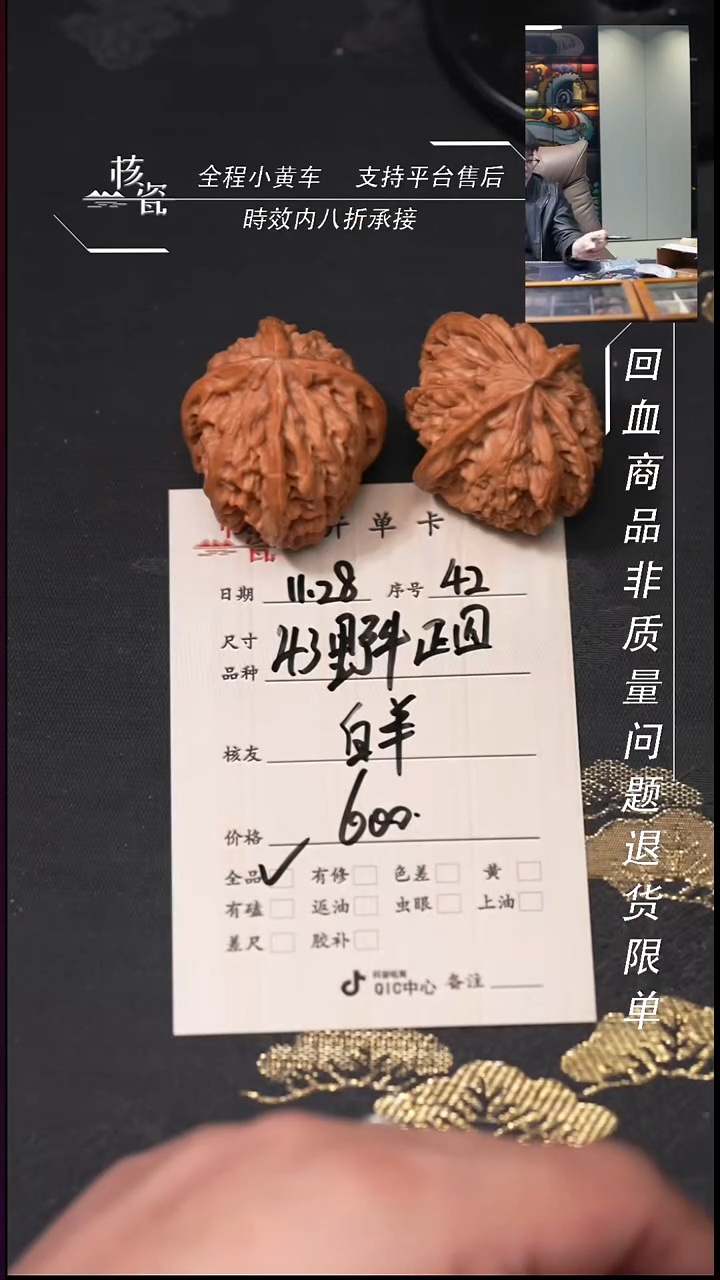 核瓷
全程小黄车 支持平台售后
時效内八折承接
回血商品非质量问题退货限单
核瓷 开单卡
日期 11.28 序号 42
尺寸
品种 43野牛正囧
核友 白羊
价格 600.
全品 ✓ 有修 色差 黄
有磕 返油 虫眼 上油
差尺 胶补
抖音电商
QIC中心 备注